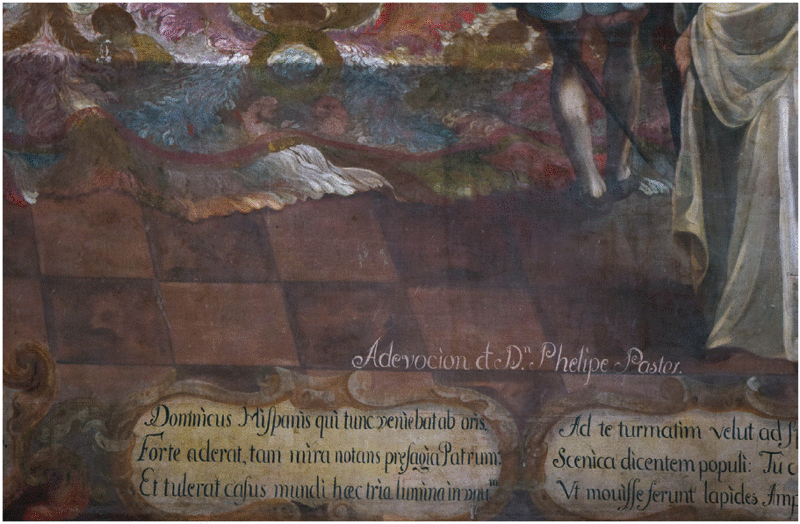 Adevocion d D.ⁿ Phelipe Pastor.
Dominicus Hispanis qui tunc veniebat ab oris,
Forte aderat, tam mira notans presagia Patrum:
Et tulerat casus mundi hæc tria lumina in unuᵐ
Ad te turmatim velut ad
Scenica dicentem populi: Tu c
Vt mouisse ferunt lapides Amp